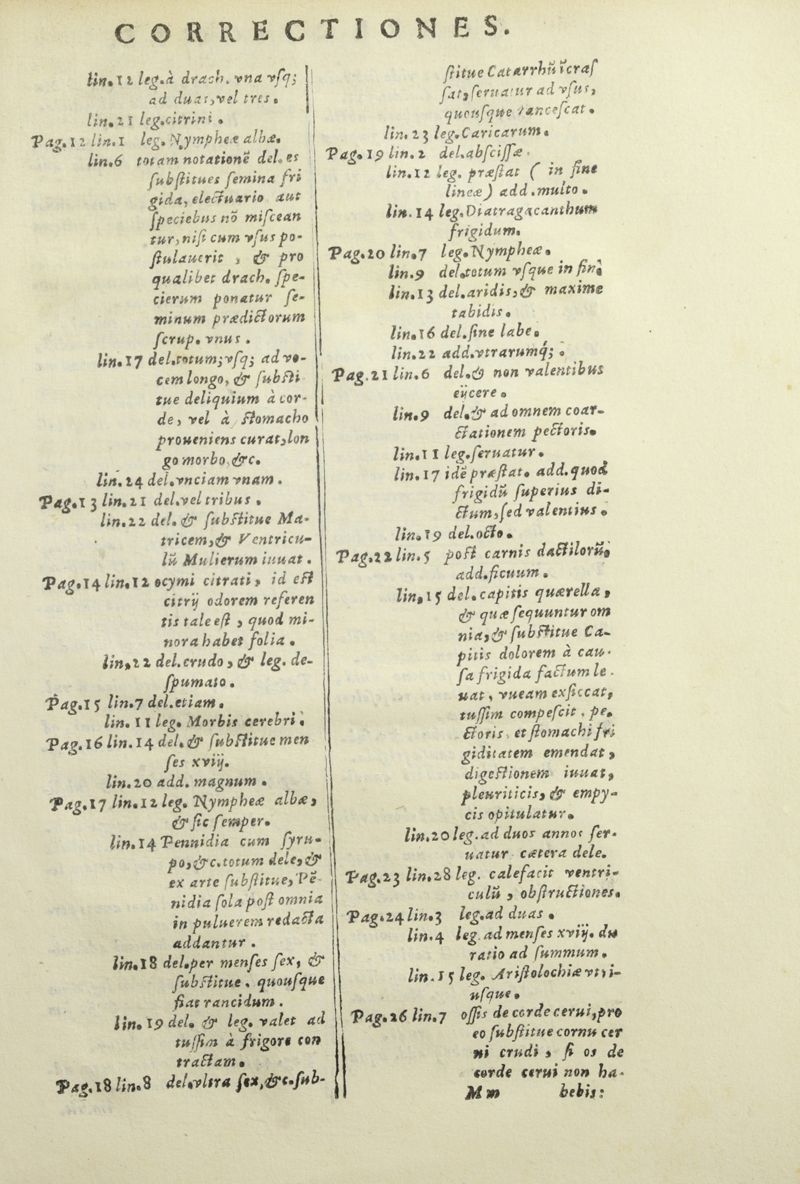 CORRECTIONES.
lin.12 leg.à drach. vna vsq;
ad duas,vel tres.
lin.21 leg.citrini.
Pag.12 lin.1 leg.Nympheæ albæ.
lin.6 totam notationē del.es
substitues semina fri
gida, electuario aut
speciebus nō miscean
tur,nisi cum vsus po-
stulauerit, & pro
qualibet drach. spe-
cierum ponatur se-
minum prædictorum
scrup. vnus.
lin.17 del.totum;vsq; ad vo-
cem longo, & substi
tue deliquium à cor-
de, vel à stomacho
proueniens curat,lon
go morbo,&c.
lin.24 del.vnciam vnam.
Pag.13 lin.21 del.vel tribus.
lin.22 del.& substitue Ma-
tricem,& Ventricu-
lū Mulierum iuuat.
Pag.14 lin.12 ocymi citrati, id est
citrij odorem referen
tis tale est, quod mi-
nora habet folia.
lin.22 del.crudo, & leg. de-
spumato.
Pag.15 lin.7 del.etiam.
lin. 11 leg. Morbis cerebri.
Pag.16 lin.14 del.& substitue men
ses xviij.
lin.20 add. magnum.
Pag.17 lin.12 leg. Nympheæ albæ,
& sic semper.
lin.14 Pennidia cum syru-
po,&c.totum dele,&
ex arte substitue, Pē-
nidia sola post omnia
in puluerem redacta
addantur.
lin.18 del.per menses sex, &
substitue. quousque
fiat rancidum.
lin.19 del. & leg. valet ad
tussim à frigore con
tractam.
Pag.18 lin.8 del.vltra sex,&c.sub-
stitue Catarrhū īcras
sat,seruatur ad vsus,
quousque rancescat.
lin.23 leg.Caricarum.
Pag.19 lin.2 del.abscissæ.
lin.12 leg. præstat ( in fine
lineæ) add.multo.
lin.14 leg.Diatragacanthum
frigidum.
Pag.20 lin.7 leg.Nympheæ.
lin.9 del.totum vsque in finē
lin.13 del.aridis,& maxime
tabidis.
lin.16 del.sine labe.
lin.22 add.vtrarumq;.
Pag.21 lin.6 del.& non valentibus
eijcere.
lin.9 del.& ad omnem coar-
ctationem pectoris.
lin.11 leg.seruatur.
lin.17 idē præstat. add.quod
frigidū superius di-
ctum,sed valentius.
lin.19 del.octo.
Pag.22 lin.5 post carnis dactilorū,
add.ficuum.
lin.15 del.capitis quærella,
& quæ sequuntur om
nia,& substitue Ca-
pitis dolorem à cau-
sa frigida factum le-
uat, vueam exsiccat,
tussim compescit, pe-
ctoris et stomachi fri
giditatem emendat,
digestionem iuuat,
pleuriticis, & empy-
cis opitulatur.
lin.20 leg.ad duos annos ser-
uatur cætera dele.
Pag.23 lin.28 leg. calefacit ventri-
culū, obstructiones.
Pag.24 lin.3 leg.ad duas.
lin.4 leg.ad menses xviij. du
ratio ad summum.
lin.15 leg. Aristolochiæ vtri-
usque.
Pag.26 lin.7 ossis de corde cerui,pro
eo substitue cornu cer
ni crudi, si os de
corde cerui non ha-
Mm bebis: